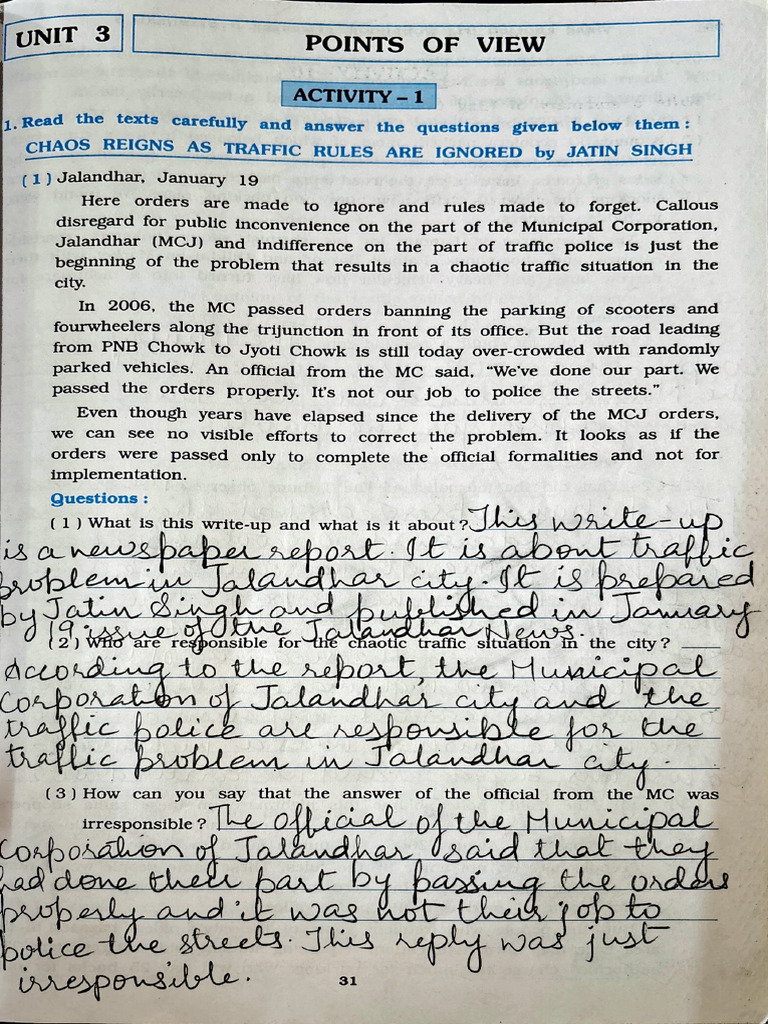 UNIT 3
POINTS OF VIEW
ACTIVITY – 1
1. Read the texts carefully and answer the questions given below them :
CHAOS REIGNS AS TRAFFIC RULES ARE IGNORED by JATIN SINGH
( 1 ) Jalandhar, January 19
Here orders are made to ignore and rules made to forget. Callous
disregard for public inconvenience on the part of the Municipal Corporation,
Jalandhar (MCJ) and indifference on the part of traffic police is just the
beginning of the problem that results in a chaotic traffic situation in the
city.
In 2006, the MC passed orders banning the parking of scooters and
fourwheelers along the trijunction in front of its office. But the road leading
from PNB Chowk to Jyoti Chowk is still today over-crowded with randomly
parked vehicles. An official from the MC said, "We've done our part. We
passed the orders properly. It's not our job to police the streets."
Even though years have elapsed since the delivery of the MCJ orders,
we can see no visible efforts to correct the problem. It looks as if the
orders were passed only to complete the official formalities and not for
implementation.
Questions :
( 1 ) What is this write-up and what is it about ? This write-up
is a newspaper report. It is about traffic
problem in Jalandhar city. It is prepared
by Jatin Singh and published in January
19 issue of the Jalandhar News.
( 2 ) Who are responsible for the chaotic traffic situation in the city ?
According to the report, the Municipal
Corporation of Jalandhar city and the
traffic police are responsible for the
traffic problem in Jalandhar city.
( 3 ) How can you say that the answer of the official from the MC was
irresponsible ? The official of the Municipal
Corporation of Jalandhar said that they
had done their part by passing the orders
properly and it was not their job to
police the streets. This reply was just
irresponsible.
31